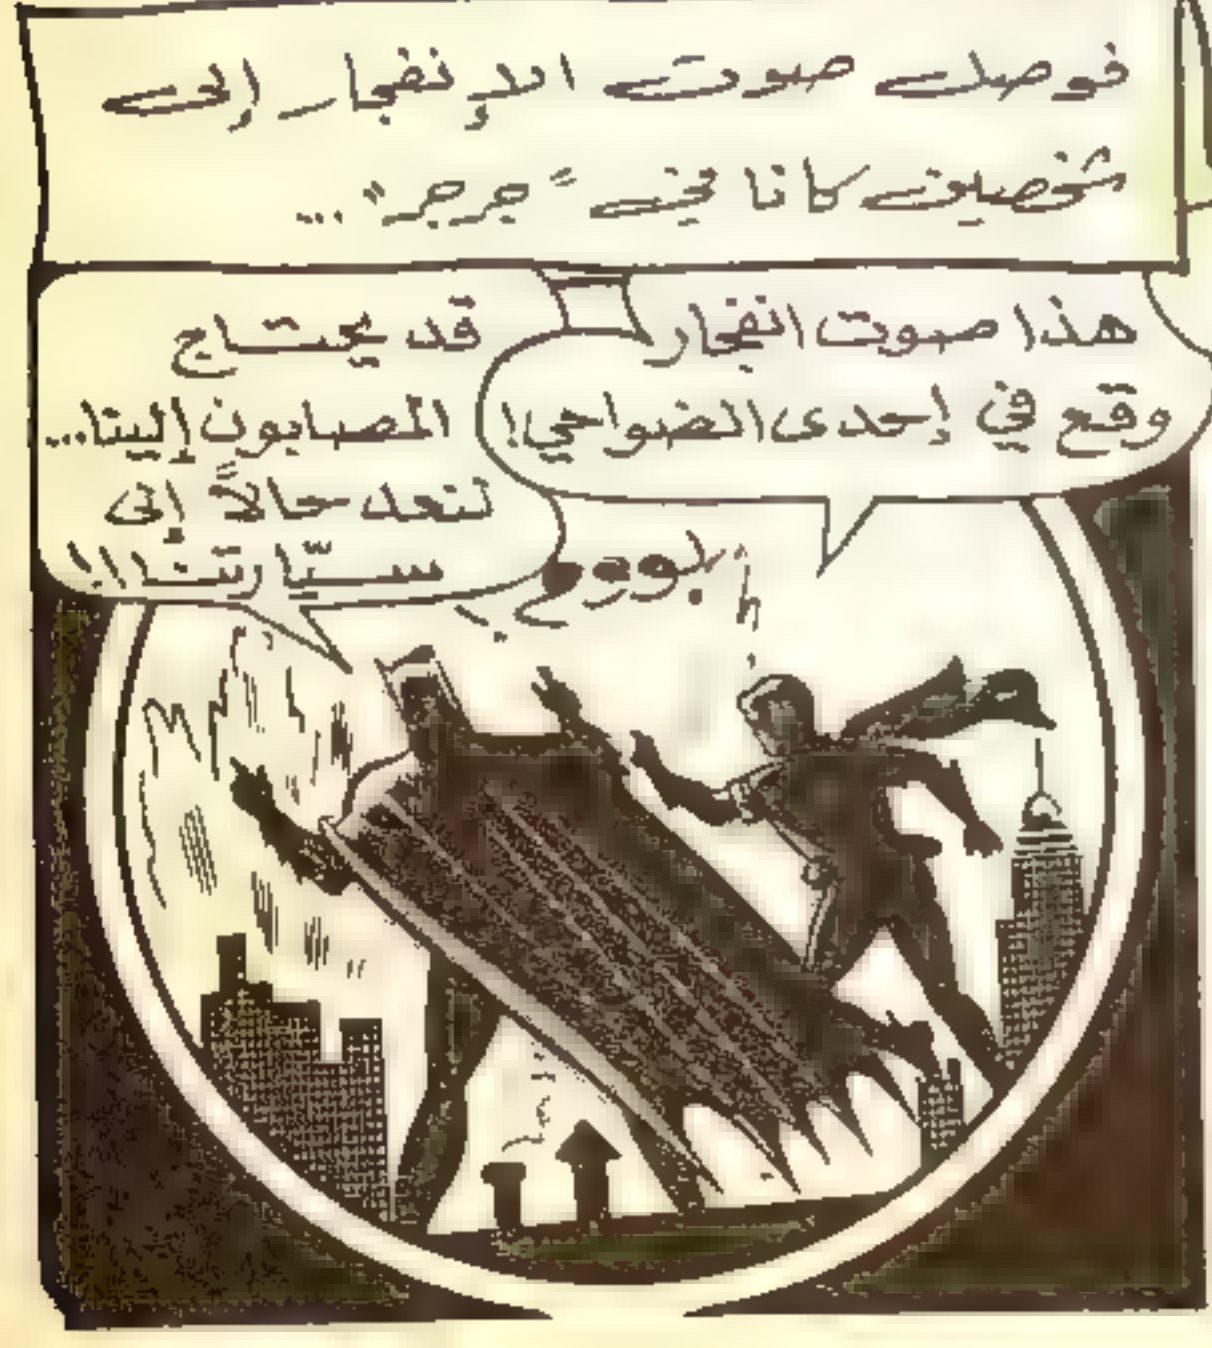 فوصل صوت الإنفجار إلى
شخصين كانا في "جرجر"...
هذا صوت انفجار
وقع في إحدى الضواحي!
قد يحتاج
المصابون إلينا...
لنعد حالاً إلى
سيّارتنا!!
بووم!